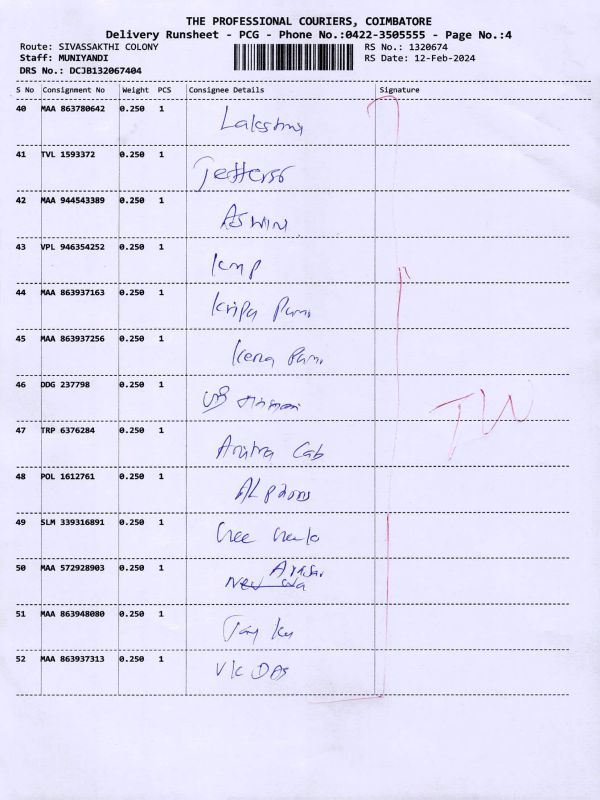 THE PROFESSIONAL COURIERS, COIMBATORE
Delivery Runsheet - PCG - Phone No.:0422-3505555 - Page No.:4
Route: SIVASSAKTHI COLONY RS No.: 1320674
Staff: MUNIYANDI RS Date: 12-Feb-2024
DRS No.: DCJB132067404
S No Consignment No Weight PCS Consignee Details Signature
40 MAA 863780642 0.250 1 Lakshmy
41 TVL 1593372 0.250 1
42 MAA 944543389 0.250 1 ASWIN
43 VPL 946354252 0.250 1 kmp
44 MAA 863937163 0.250 1 Kripa
45 MAA 863937256 0.250 1
46 DDG 237798 0.250 1
47 TRP 6376284 0.250 1 Cab
48 POL 1612761 0.250 1
49 SLM 339316891 0.250 1
50 MAA 572928903 0.250 1
51 MAA 863948080 0.250 1
52 MAA 863937313 0.250 1 VK DAS